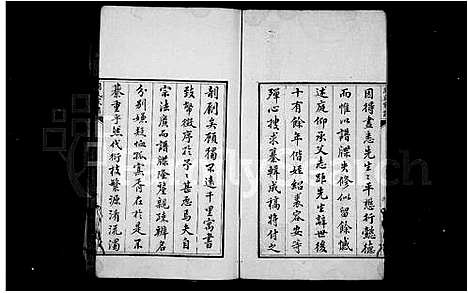 因得盡悉先生之平想行懿德
而惟以譜牒失修似留餘憾
述庭仰承父志距先生辭世後
十有餘年偕姪紹裘容安等
殫心搜求纂輯成稿將付之
剞劂矣顧獨不遠千里寓書
致幣徵序於予予甚恧焉夫自
宗法廢而譜牒隆鑒親疎辨名
分別嫌疑恤孤寡胥在於是不
綦重乎然代衍枝繁源清流濁